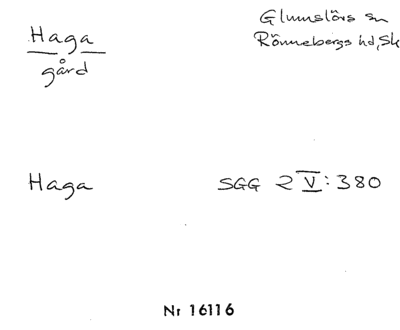 Haga
gård
Glumslövs sn
Rönnebergs hd, Sk
Haga
SGG 2 V: 380
Nr 16116